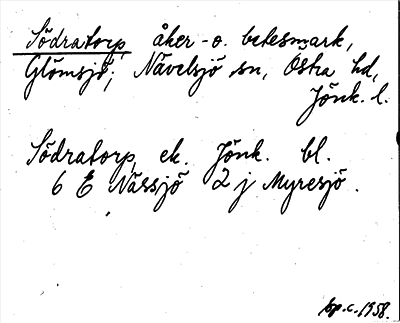 Södratorp, åker- o. betesmark,
Glömsjö; Nävelsjö sn, Östra hd,
Jönk. l.
Södratorp, ek. Jönk. bl.
6 E Nässjö 2 j Myresjö.
bp.c. 1958.